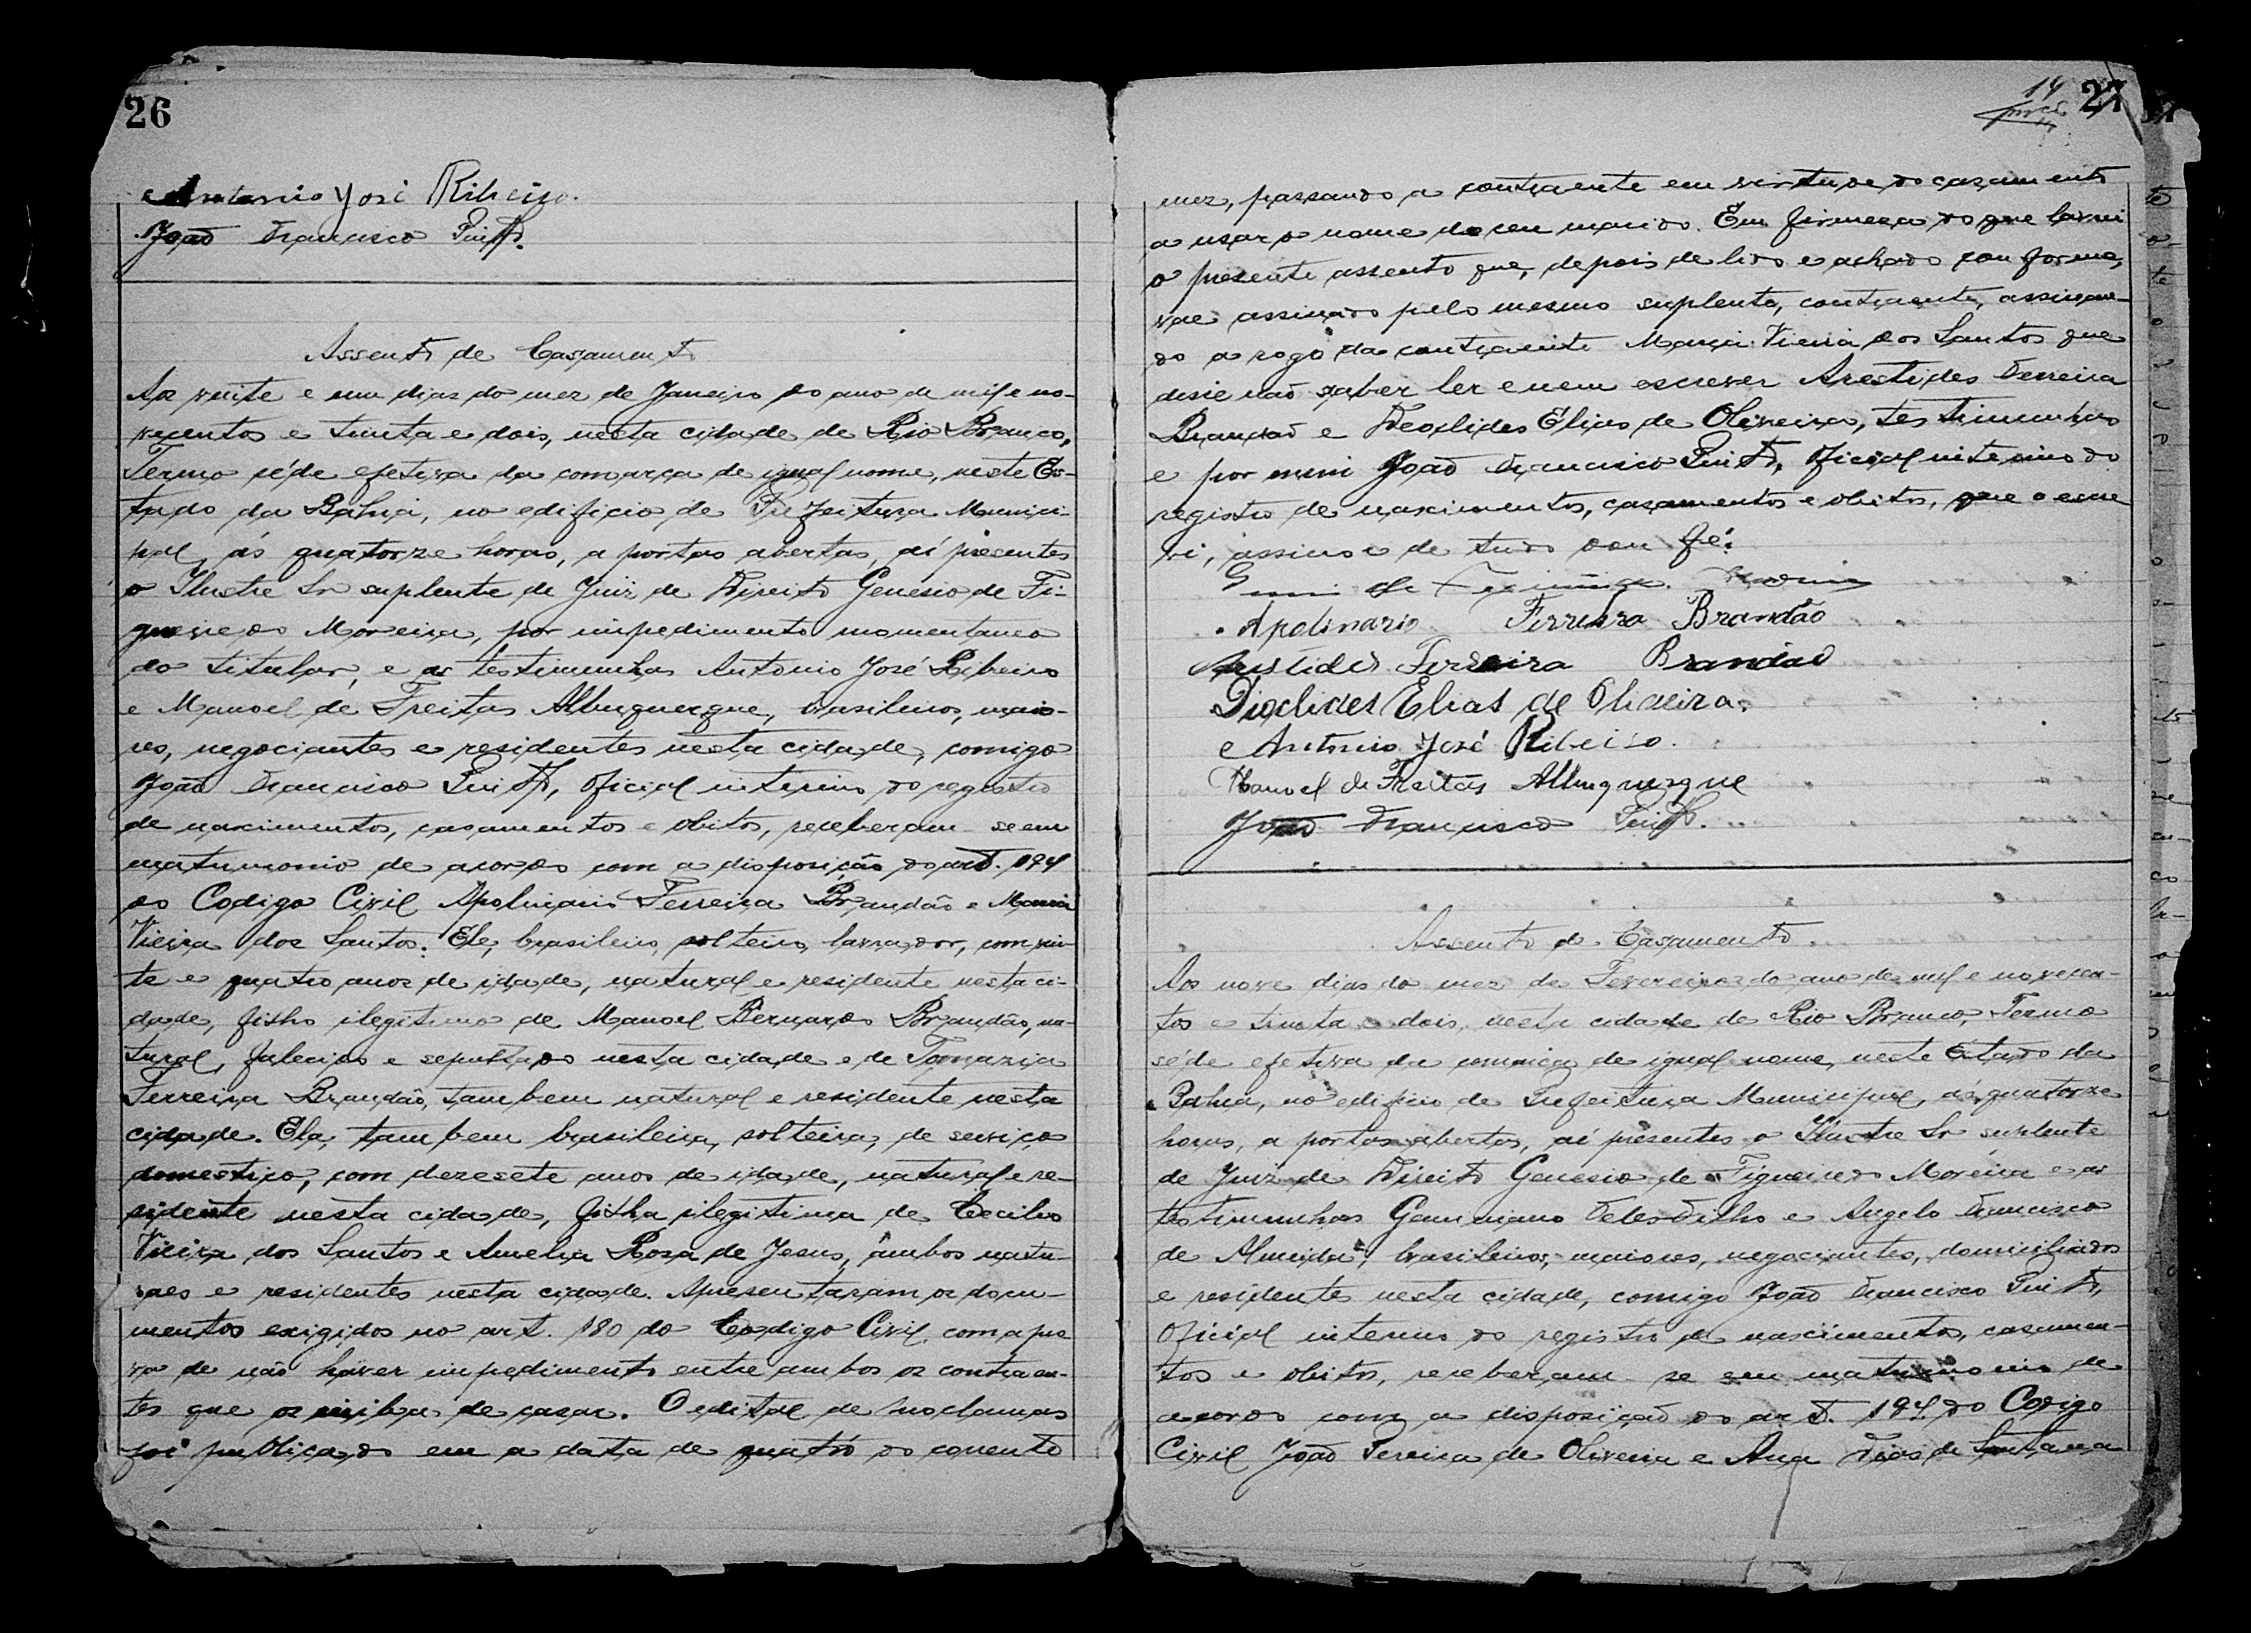 26
Antonio José Ribeiro.
João Francisco
Assento de Casamento
Aos vinte e um dias do mez de Janeiro do ano de mil e no-
vecentos e trinta e dois, nesta cidade de Rio Branco,
Termo séde efetiva da comarca de igual nome, neste Es-
tado da Bahia, no edificio de Prefeitura Munici-
pal, ás quatorze horas, a portas abertas, aí presentes
o Ilustre Sr suplente de Juiz de Direito Genesio de Fi-
gueiredo Moreira, por impedimento momentaneo
do titular, e as testimunhas Antonio José Ribeiro
e Manoel de Freitas Albuquerque, brasileiros, maio-
res, negociantes e residentes nesta cidade, comigo
João Francisco oficial interino do registro
de nascimentos, casamentos e obitos, receberam-se em
matrimonio de acordo com a disposição do art. 194
do Codigo Civil Apolinario Ferreira Brandão e Maria
Vieira dos Santos. Ele, brasileiro, solteiro, lavrador, com vin-
te e quatro anos de idade, natural e residente nesta ci-
dade, filho ilegitimo de Manoel Bernardo Brandão, na-
tural, falecido e sepultado nesta cidade e de Tomazia
Ferreira Brandão, tambem natural e residente nesta
cidade. Ela, tambem brasileira, solteira, de serviço
domestico, com dezesete anos de idade, natural e re-
sidente nesta cidade, filha ilegitima de Cecilio
Vieira dos Santos e Amelia Rosa de Jesus, ambos natu-
raes e residentes nesta cidade. Apresentaram os docu-
mentos exigidos no art. 180 do Codigo Civil, com a pro
va de não haver impedimento entre ambos os contraen-
tes que os iniba de casar. O edital de proclamas
foi publicado em a data de quatro do corrente
14 27
mez, passando a contraente em virtude do casamento
a usar o nome do seu marido. Em firmeza do que lavrei
o presente assento que, depois de lido e achado conforme,
vae assinado pelo mesmo suplente, contraente, assinan-
do a rogo da contraente Maria Vieira dos Santos que
disse não saber ler e nem escrever Arestides Ferreira
Brandão e Deoclides Elias de Oliveira, testimunhas
e por mim João Francisco oficial interino do
registro de nascimentos, casamentos e obitos, que o escre
vi, assino e de tudo dou fé.
Apolinario Ferreira Brandão
Aristides Ferreira Brandão
Dioclides Elias de Oliveira.
Antonio José Ribeiro.
Manoel de Freitas Albuquerque
João Francisco
Assento de Casamento.
Aos nove dias do mez de Fevereiro do ano de mil e novecen-
tos e trinta e dois, nesta cidade de Rio Branco, Termo
séde efetiva da comarca de igual nome, neste Estado da
Bahia, no edificio de Prefeitura Municipal, ás quatorze
horas, a portas abertas, aí presentes o Ilustre Sr suplente
de Juiz de Direito Genesio de Figueiredo Moreira e as
testimunhas Teles Filho e Angelo Francisco
de Almeida, brasileiros, maiores, negociantes, domiciliados
e residentes nesta cidade, comigo João Francisco
Oficial interino do registro de nascimentos, casamen-
tos e obitos, receberam-se em matrimonio de
acordo com a disposição do art. 194 do Codigo
Civil João Pereira de Oliveira e Ana de Santana